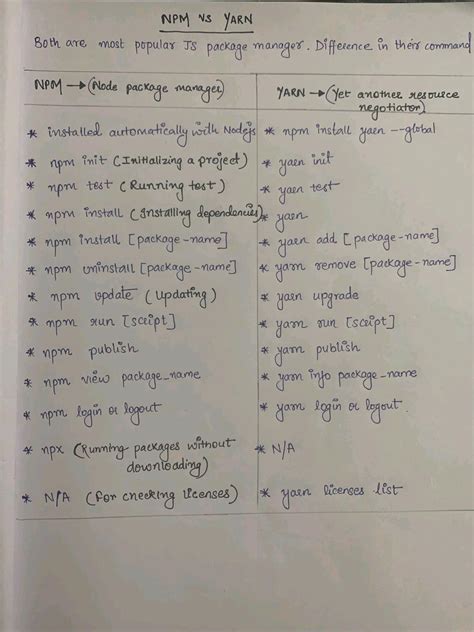 NPM vs YARN
Both are most popular JS package manager. Difference in their command
NPM → (Node package manager)
YARN → (Yet another resource
negotiator)
* installed automatically with Nodejs
* npm install yarn --global
* npm init (Initializing a project)
* yarn init
* npm test (Running test)
* yarn test
* npm install (Installing dependencies)
* yarn
* npm install [package-name]
* yarn add [package-name]
* npm uninstall [package-name]
* yarn remove [package-name]
* npm update (Updating)
* yarn upgrade
* npm run [script]
* yarn run [script]
* npm publish
* yarn publish
* npm view package_name
* yarn info package-name
* npm login or logout
* yarn login or logout
* npx (Running packages without
downloading)
* N/A
* N/A (for checking licenses)
* yarn licenses list